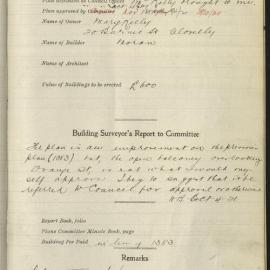 Plan approved by
Name of Owner Mary Kelly
St Clovelly
Name of Builder Moran
Name of Architect
Value of Buildings to be erected £600
Building Surveyor's Report to Committee
The plan is an improvement on the previous
plan (1353) but, the open balcony overlooking
Orange St, is not what I would my
self approve I beg to suggest that it be
referred to Council for approval or otherwise
Oct
Report Book, folio
Plans Committee Minute Book, page
Building Fee Paid 1353
Remarks